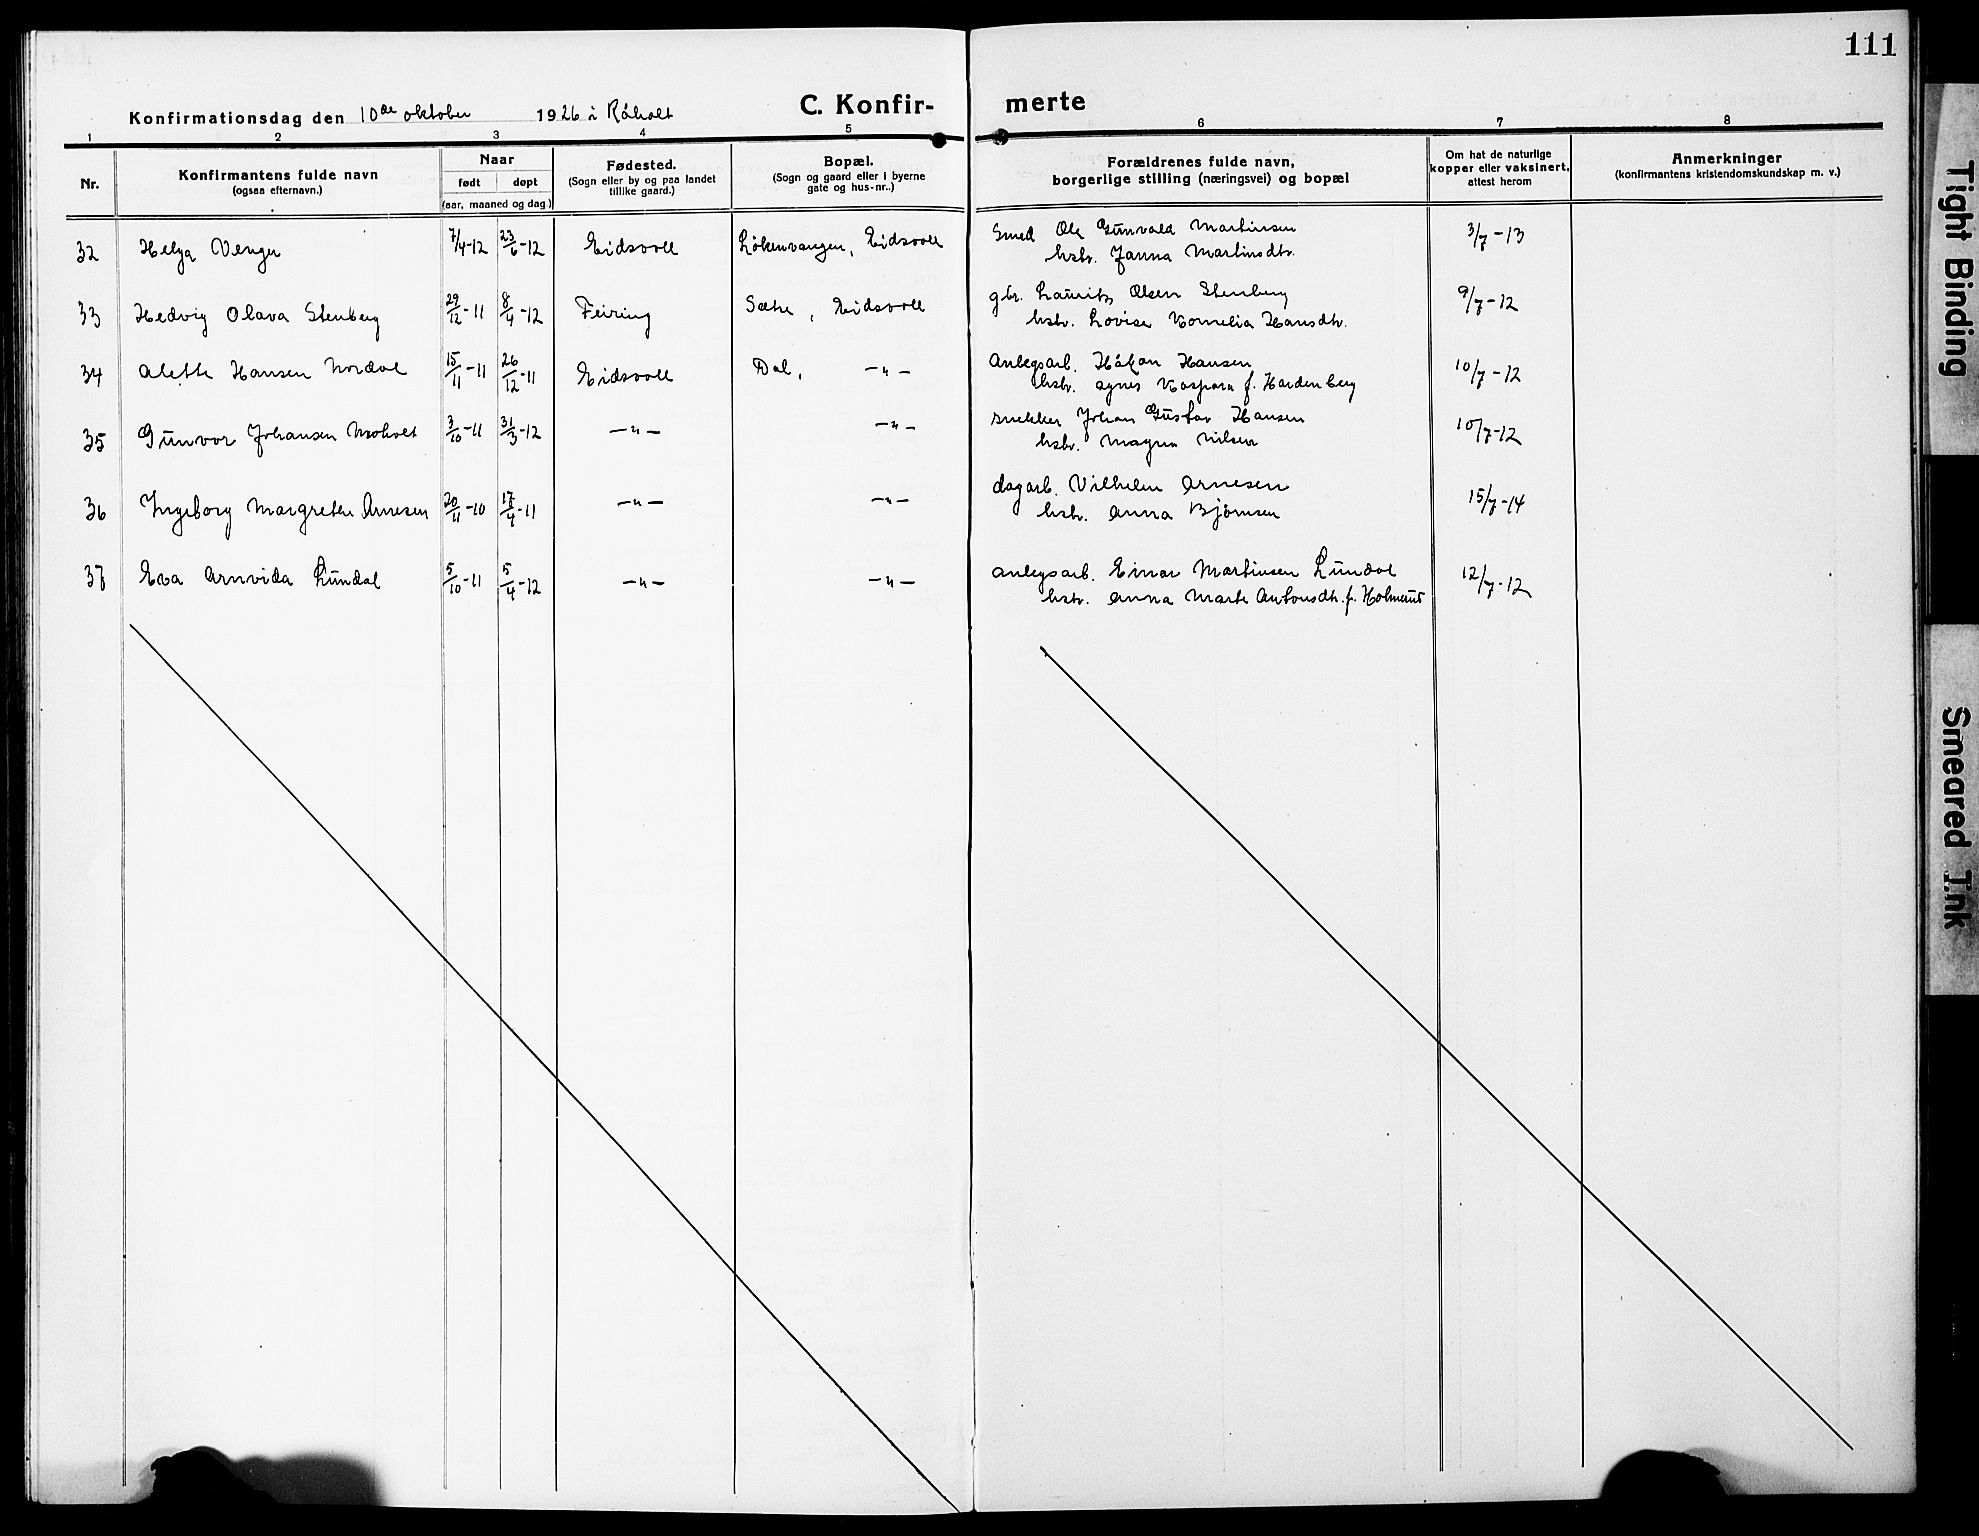 111
Konfirmationsdag den 10de oktober 1926 i Råholt
C. Konfir-
merte
1 2 3 4 5 6 7 8
Nr.
Konfirmantens fulde navn
(ogsaa efternavn.)
Naar
født døpt
(aar, maaned og dag)
Fødested.
(Sogn eller by og paa landet
tillike gaard.)
Bopæl.
(Sogn og gaard eller i byerne
gate og hus-nr..)
Forældrenes fulde navn,
borgerlige stilling (næringsvei) og bopæl
Om hat de naturlige
kopper eller vaksinert,
attest herom
Anmerkninger
(konfirmantens kristendomskundskap m. v.)
32 Helga Venger 7/4-12 23/6-12 Eidsvoll Løkenvangen, Eidsvoll Smed Ole Gunvald Martinsen 3/7-13
hstr. Janna Martinsdtr.
33 Hedvig Olava Stenberg 29/12-11 8/4-12 Feiring Sætre, Eidsvoll gbr. Lauritz Olsen Stenberg 9/7-12
hstr. Lovise Kornelia Hansdtr.
34 Alette Hansen Nordal 15/11-11 26/12-11 Eidsvoll Dal, -"- Anlegsarb. Håkon Hansen 10/7-12
hstr. Agnes Kaspara f. Hardenberg
35 Gunvor Johansen Moholt 3/10-11 31/3-12 -"- -"- snekker Johan Gustav Hansen 10/7-12
hstr. Magna Nilsen
36 Ingeborg Margrethe Arnesen 20/11-10 17/4-11 -"- -"- dagarb. Vilhelm Arnesen 15/7-14
hstr. Anna Bjørnsen
37 Eva Arnvida Lundal 5/10-11 5/4-12 -"- -"- anlegsarb. Einar Martinsen Lundal 12/7-12
hstr. Anna Marte Antonsdtr. f.
Tight Binding
Smeared Ink